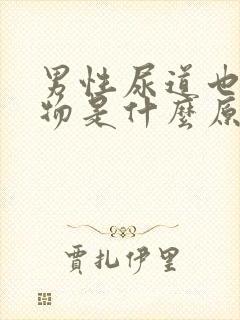 男性尿道也
物是什麼原
賈扎伊里